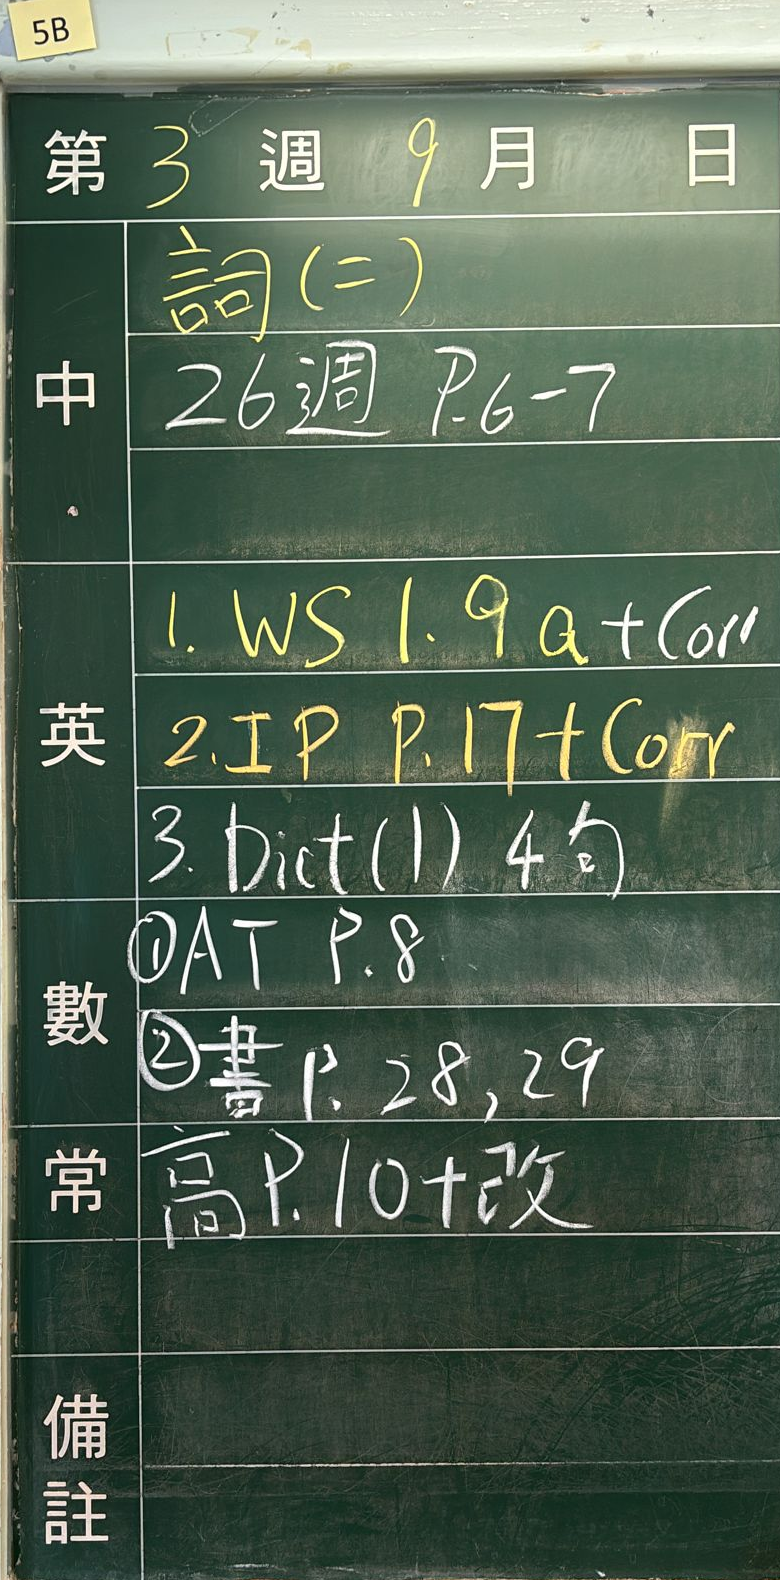 5B
第 3 週 9 月 日
中
詞(二)
26週 P.6-7
英
1. WS 1.9a+Corr
2. IP P.17+Corr
3. Dict(1) 4句
數
①AT P.8
②書P. 28,29
常
高P.10+改
備註